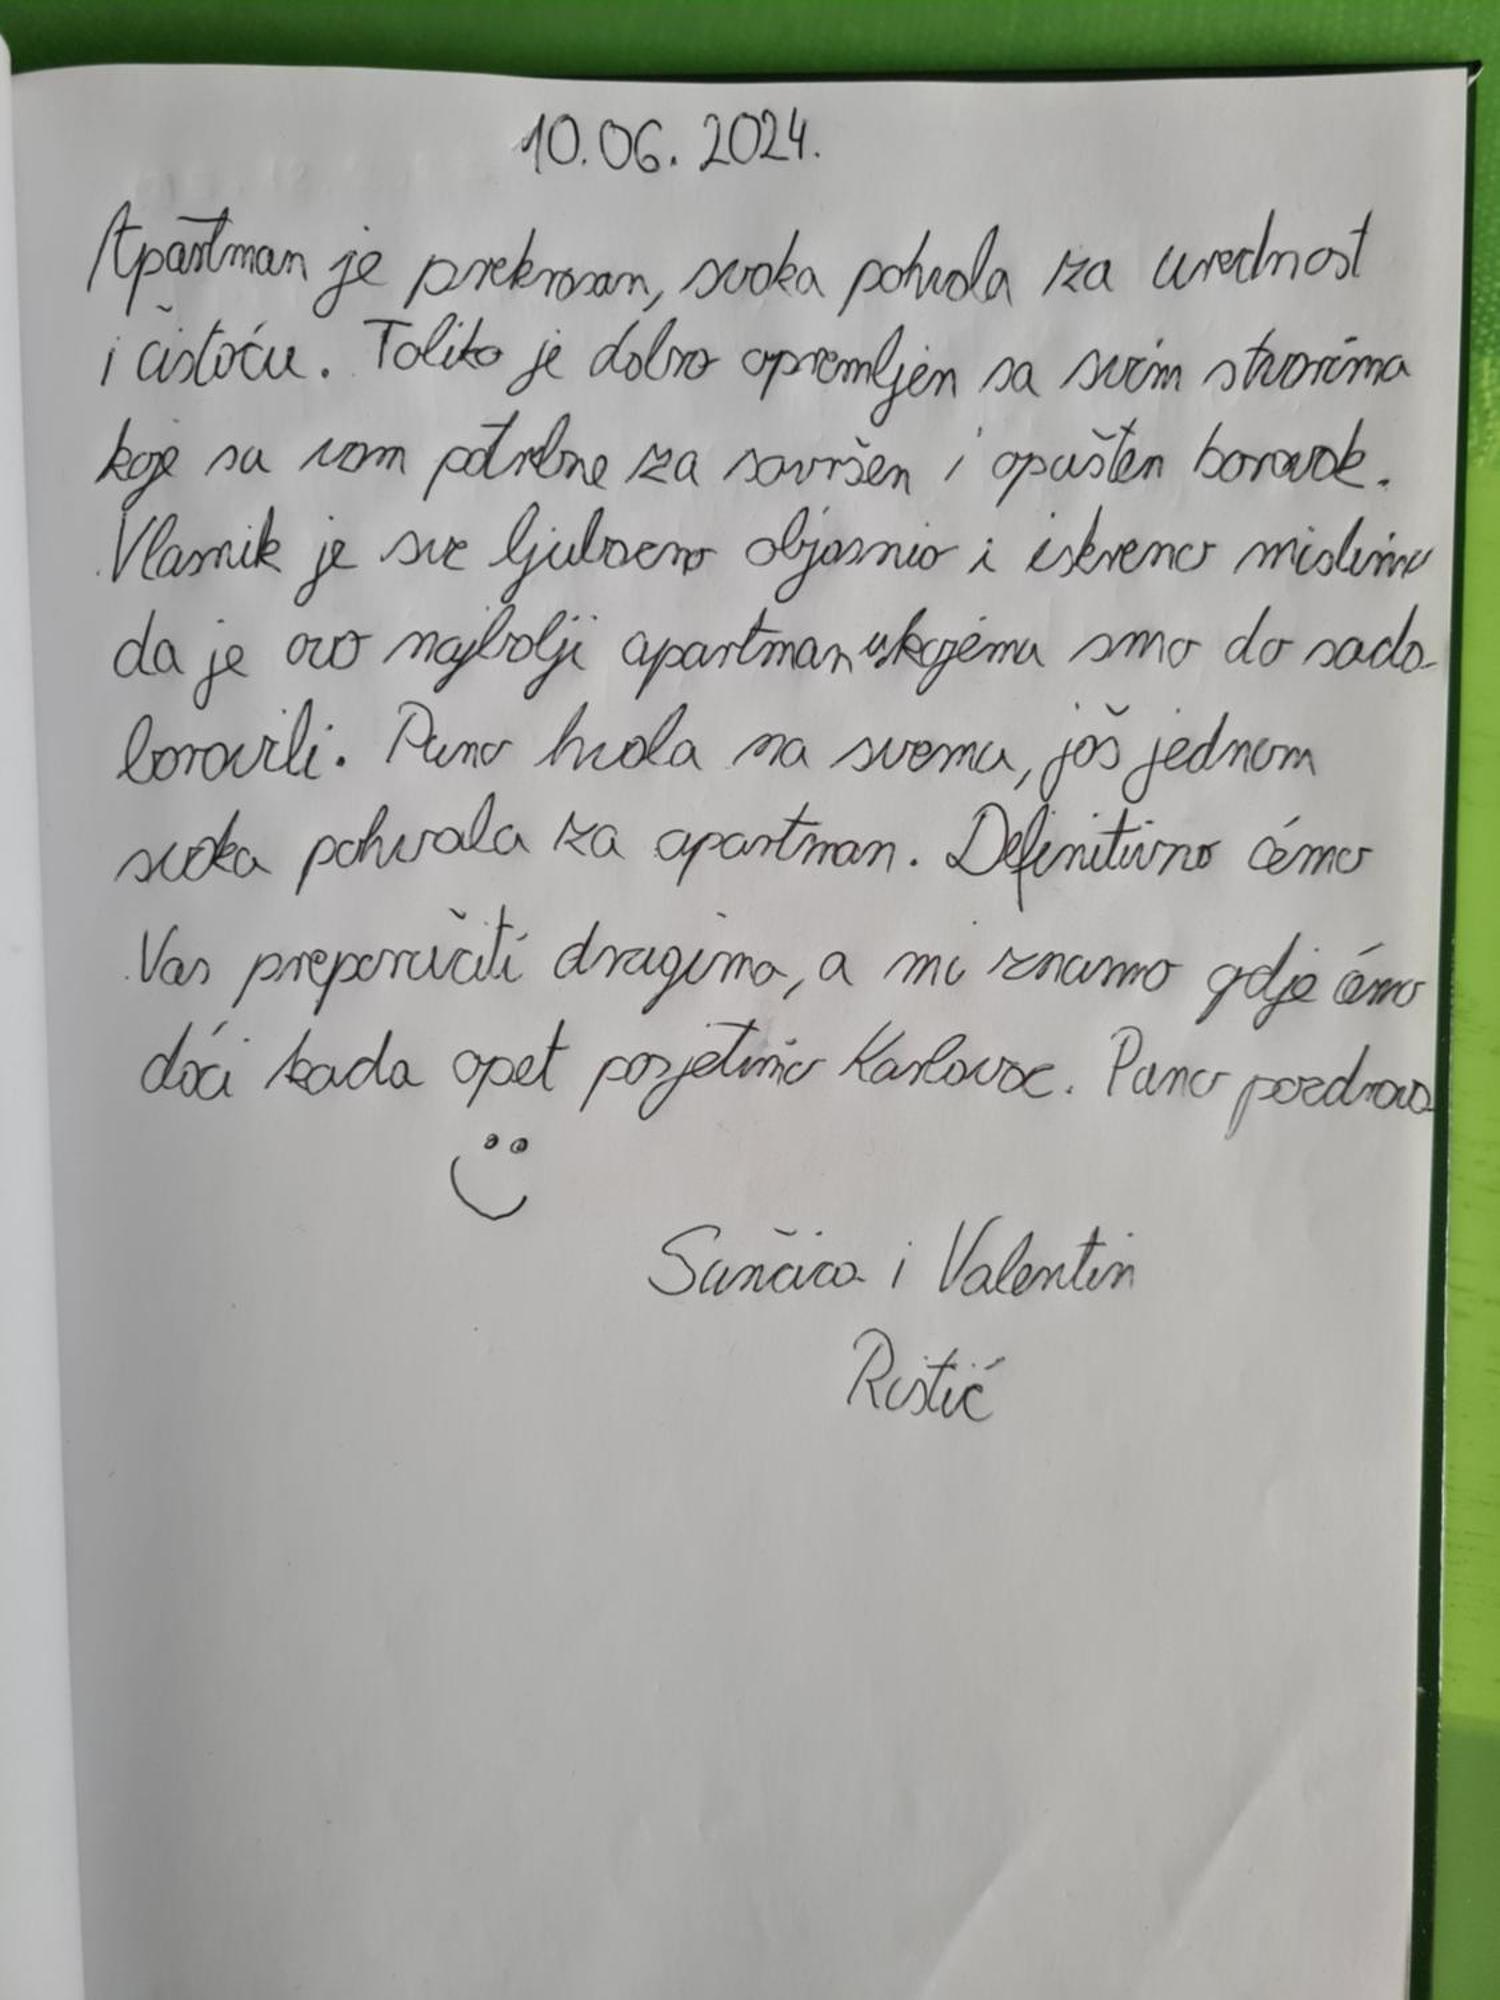 10.06.2024.
Apartman je prekrasan, svaka pohvala za urednost
i čistoću. Toliko je dobro opremljen sa svim stvarima
koje su vam potrebne za savršen i opušten boravak.
Vlasnik je sve ljubazno objasnio i iskreno mislimo
da je ovo najbolji apartman u kojemu smo do sada
boravili. Puno hvala na svemu, još jednom
svaka pohvala za apartman. Definitivno ćemo
Vas preporučiti dragima, a mi znamo gdje ćemo
doći kada opet posjetimo Karlovac. Puno pozdrava
Sunčica i Valentin
Ristić